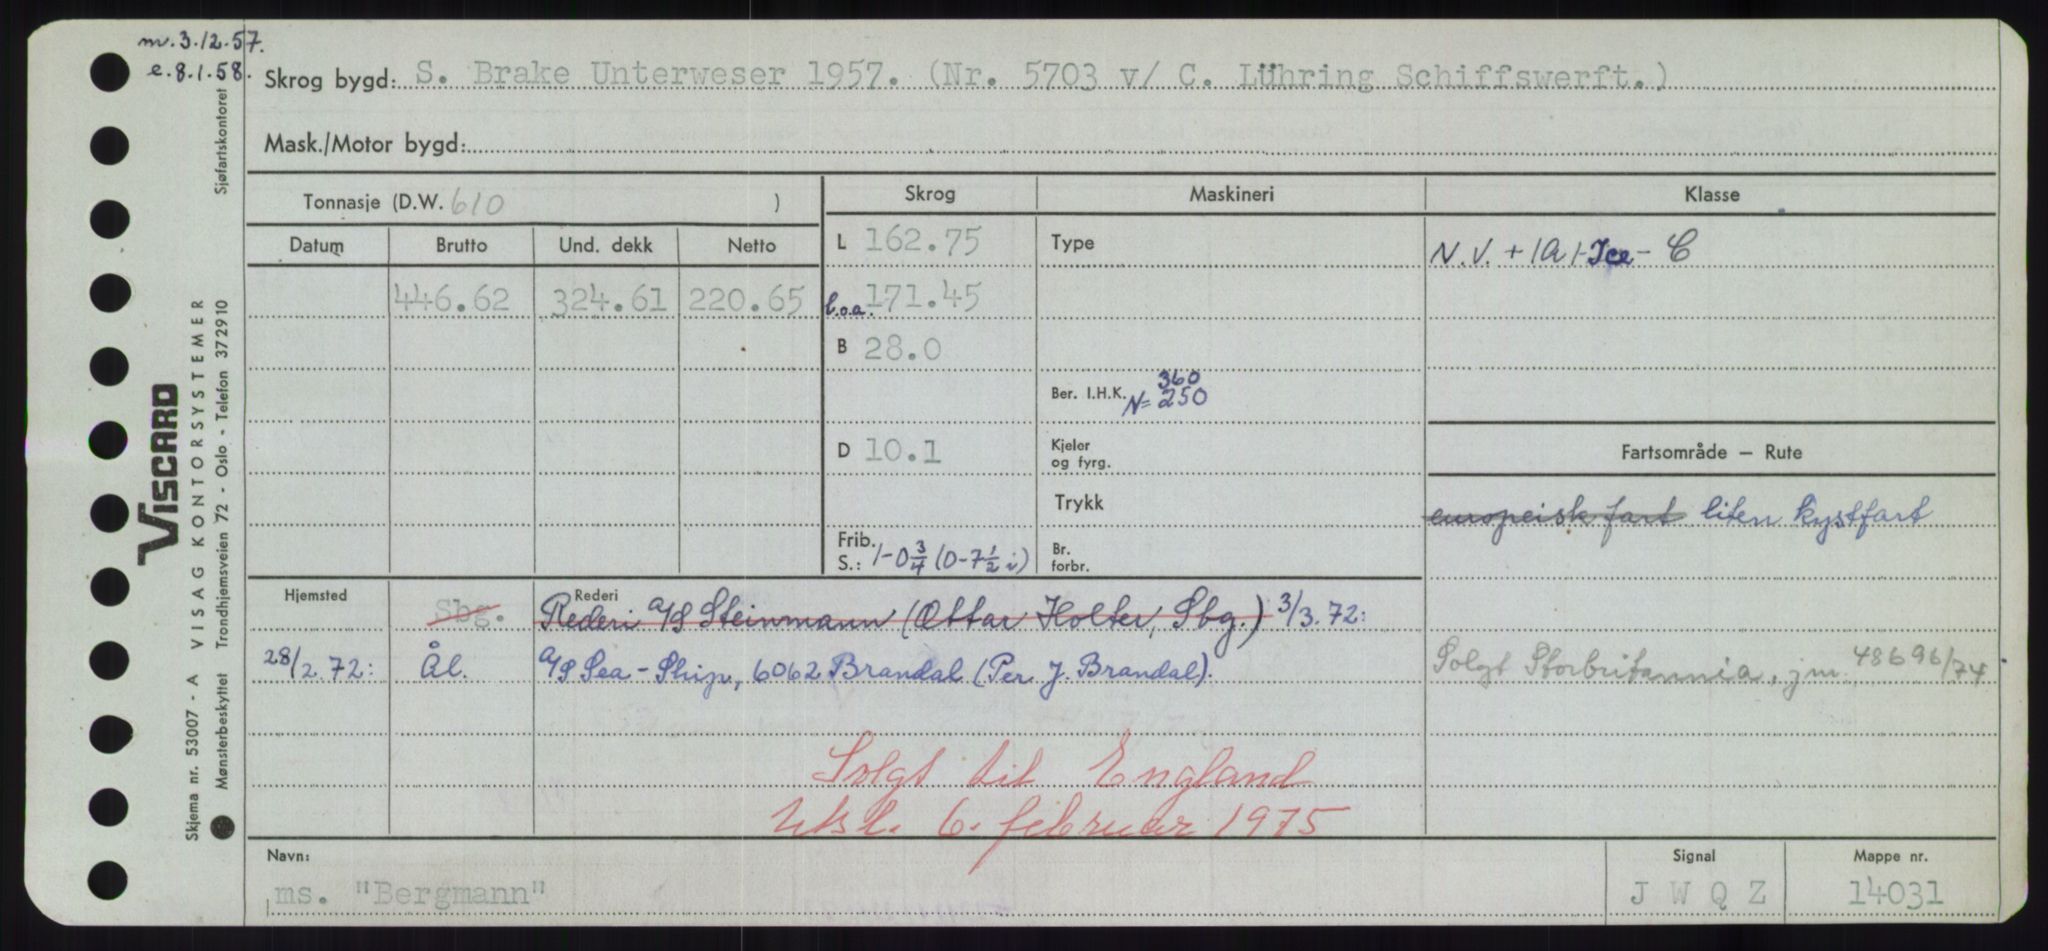 m. 3.12.57.
e. 8.1.58.
Skrog bygd: S. Brake Unterweser 1957. (Nr. 5703 v/ C. Lühring Schiffswerft.)
Mask./Motor bygd:
Tonnasje (D.W. 610 )
Skrog Maskineri Klasse
Datum Brutto Und. dekk Netto
L 162.75 Type N.V. + 1A1-Ice-C
446.62 324.61 220.65 l.o.a. 171.45
B 28.0
360
Ber. I.H.K. N= 250
D 10.1 Kjeler
og fyrg.
Fartsområde – Rute
Trykk
europeisk fart liten kystfart
Frib.
S.: 1-0 3/4 (0-7 1/2 i) Br.
forbr.
Hjemsted Rederi
Sbg. Rederi A/S Steinmann (Ottar Holter, Sbg.) 3/3.72:
28/2.72: Ål. A/S Sea-Ship, 6062 Brandal (Per J. Brandal).
Solgt Storbritannia, jm. 48696/74
Solgt til England
Utsl. 6. februar 1975
Navn: Signal Mappe nr.
ms. "Bergmann" J W Q Z 14031
VISCARD
VISAG KONTORSYSTEMER
Skjema nr. 53007 - A
Sjøfartskontoret
Mønsterbeskyttet Trondhjemsveien 72 - Oslo - Telefon 372910